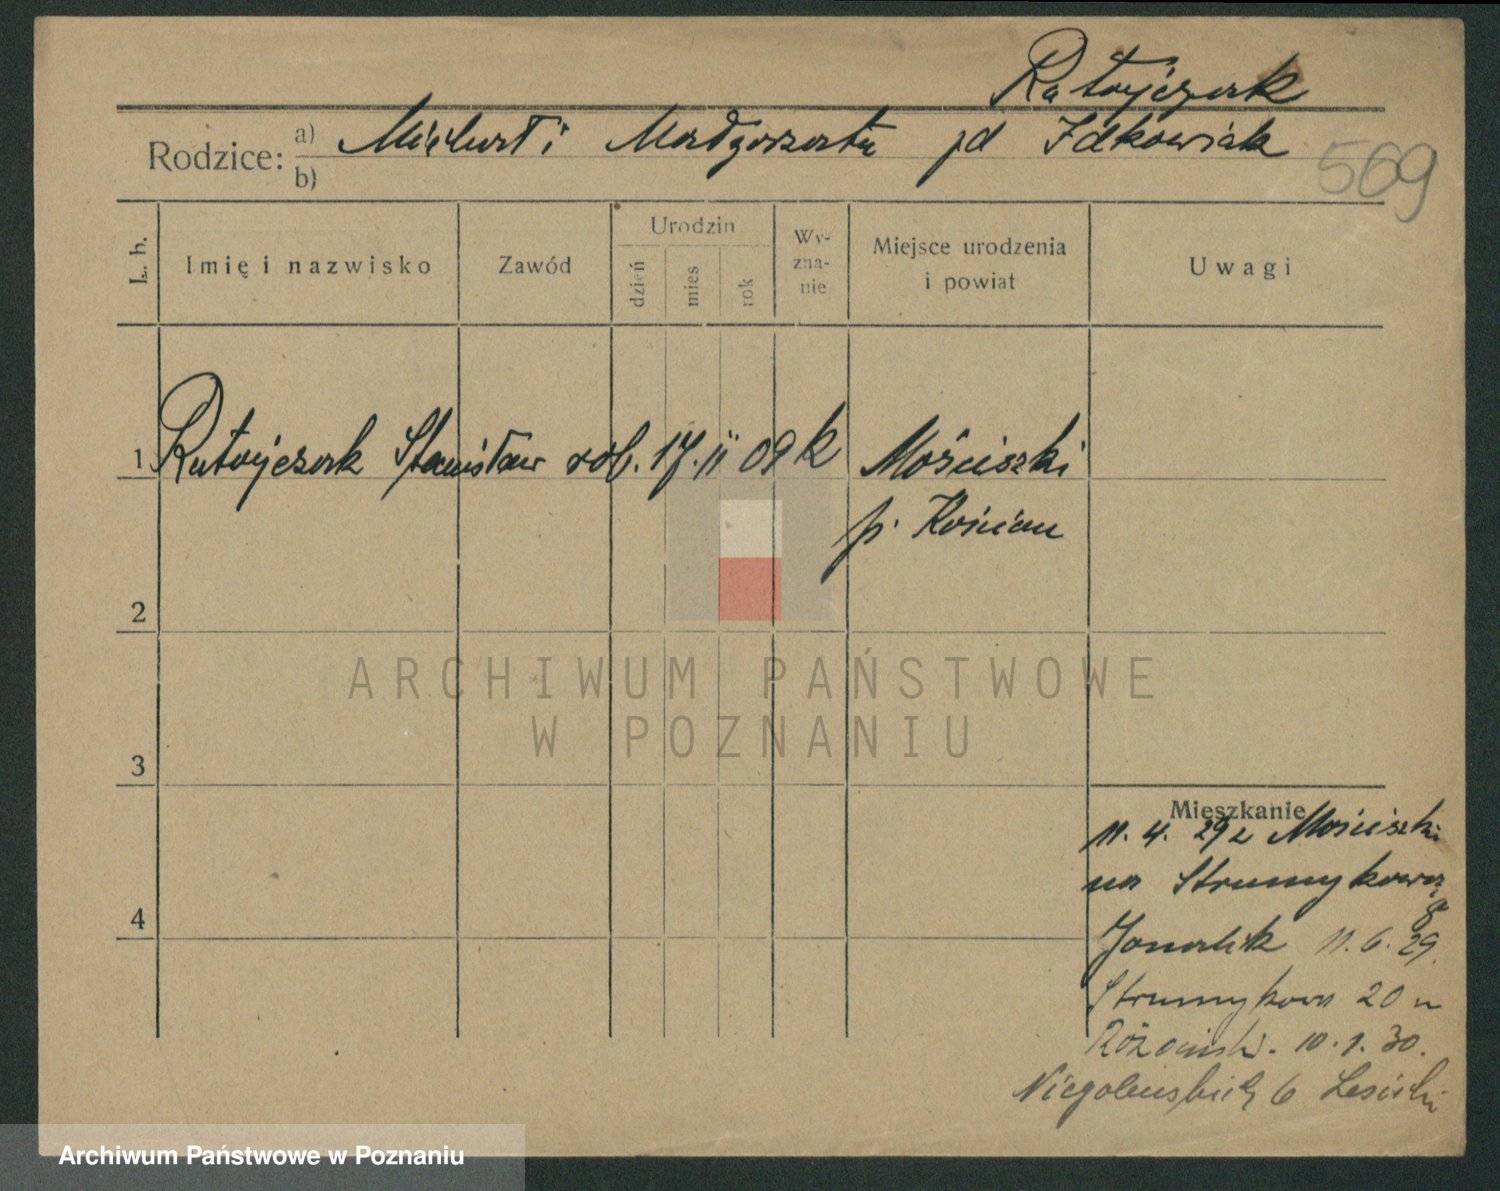 Ratajczak
Rodzice: a) Michał i Małgorzata zd Idkowiak
b)
569
L. b.
Imię i nazwisko
Zawód
Urodzin
dzień
mies
rok
Wy-
zna-
nie
Miejsce urodzenia
i powiat
Uwagi
1 Ratajczak Stanisław rob. 17. II 09 k Mościszki
p. Kościan
2
ARCHIWUM PAŃSTWOWE
W POZNANIU
3
Mieszkanie
11. 4. 29 z Mościszki
na Strumykową
8
11. 6. 29.
Strumykowa 20 u
10. 1. 30.
Niegolewskich 6
4
Archiwum Państwowe w Poznaniu